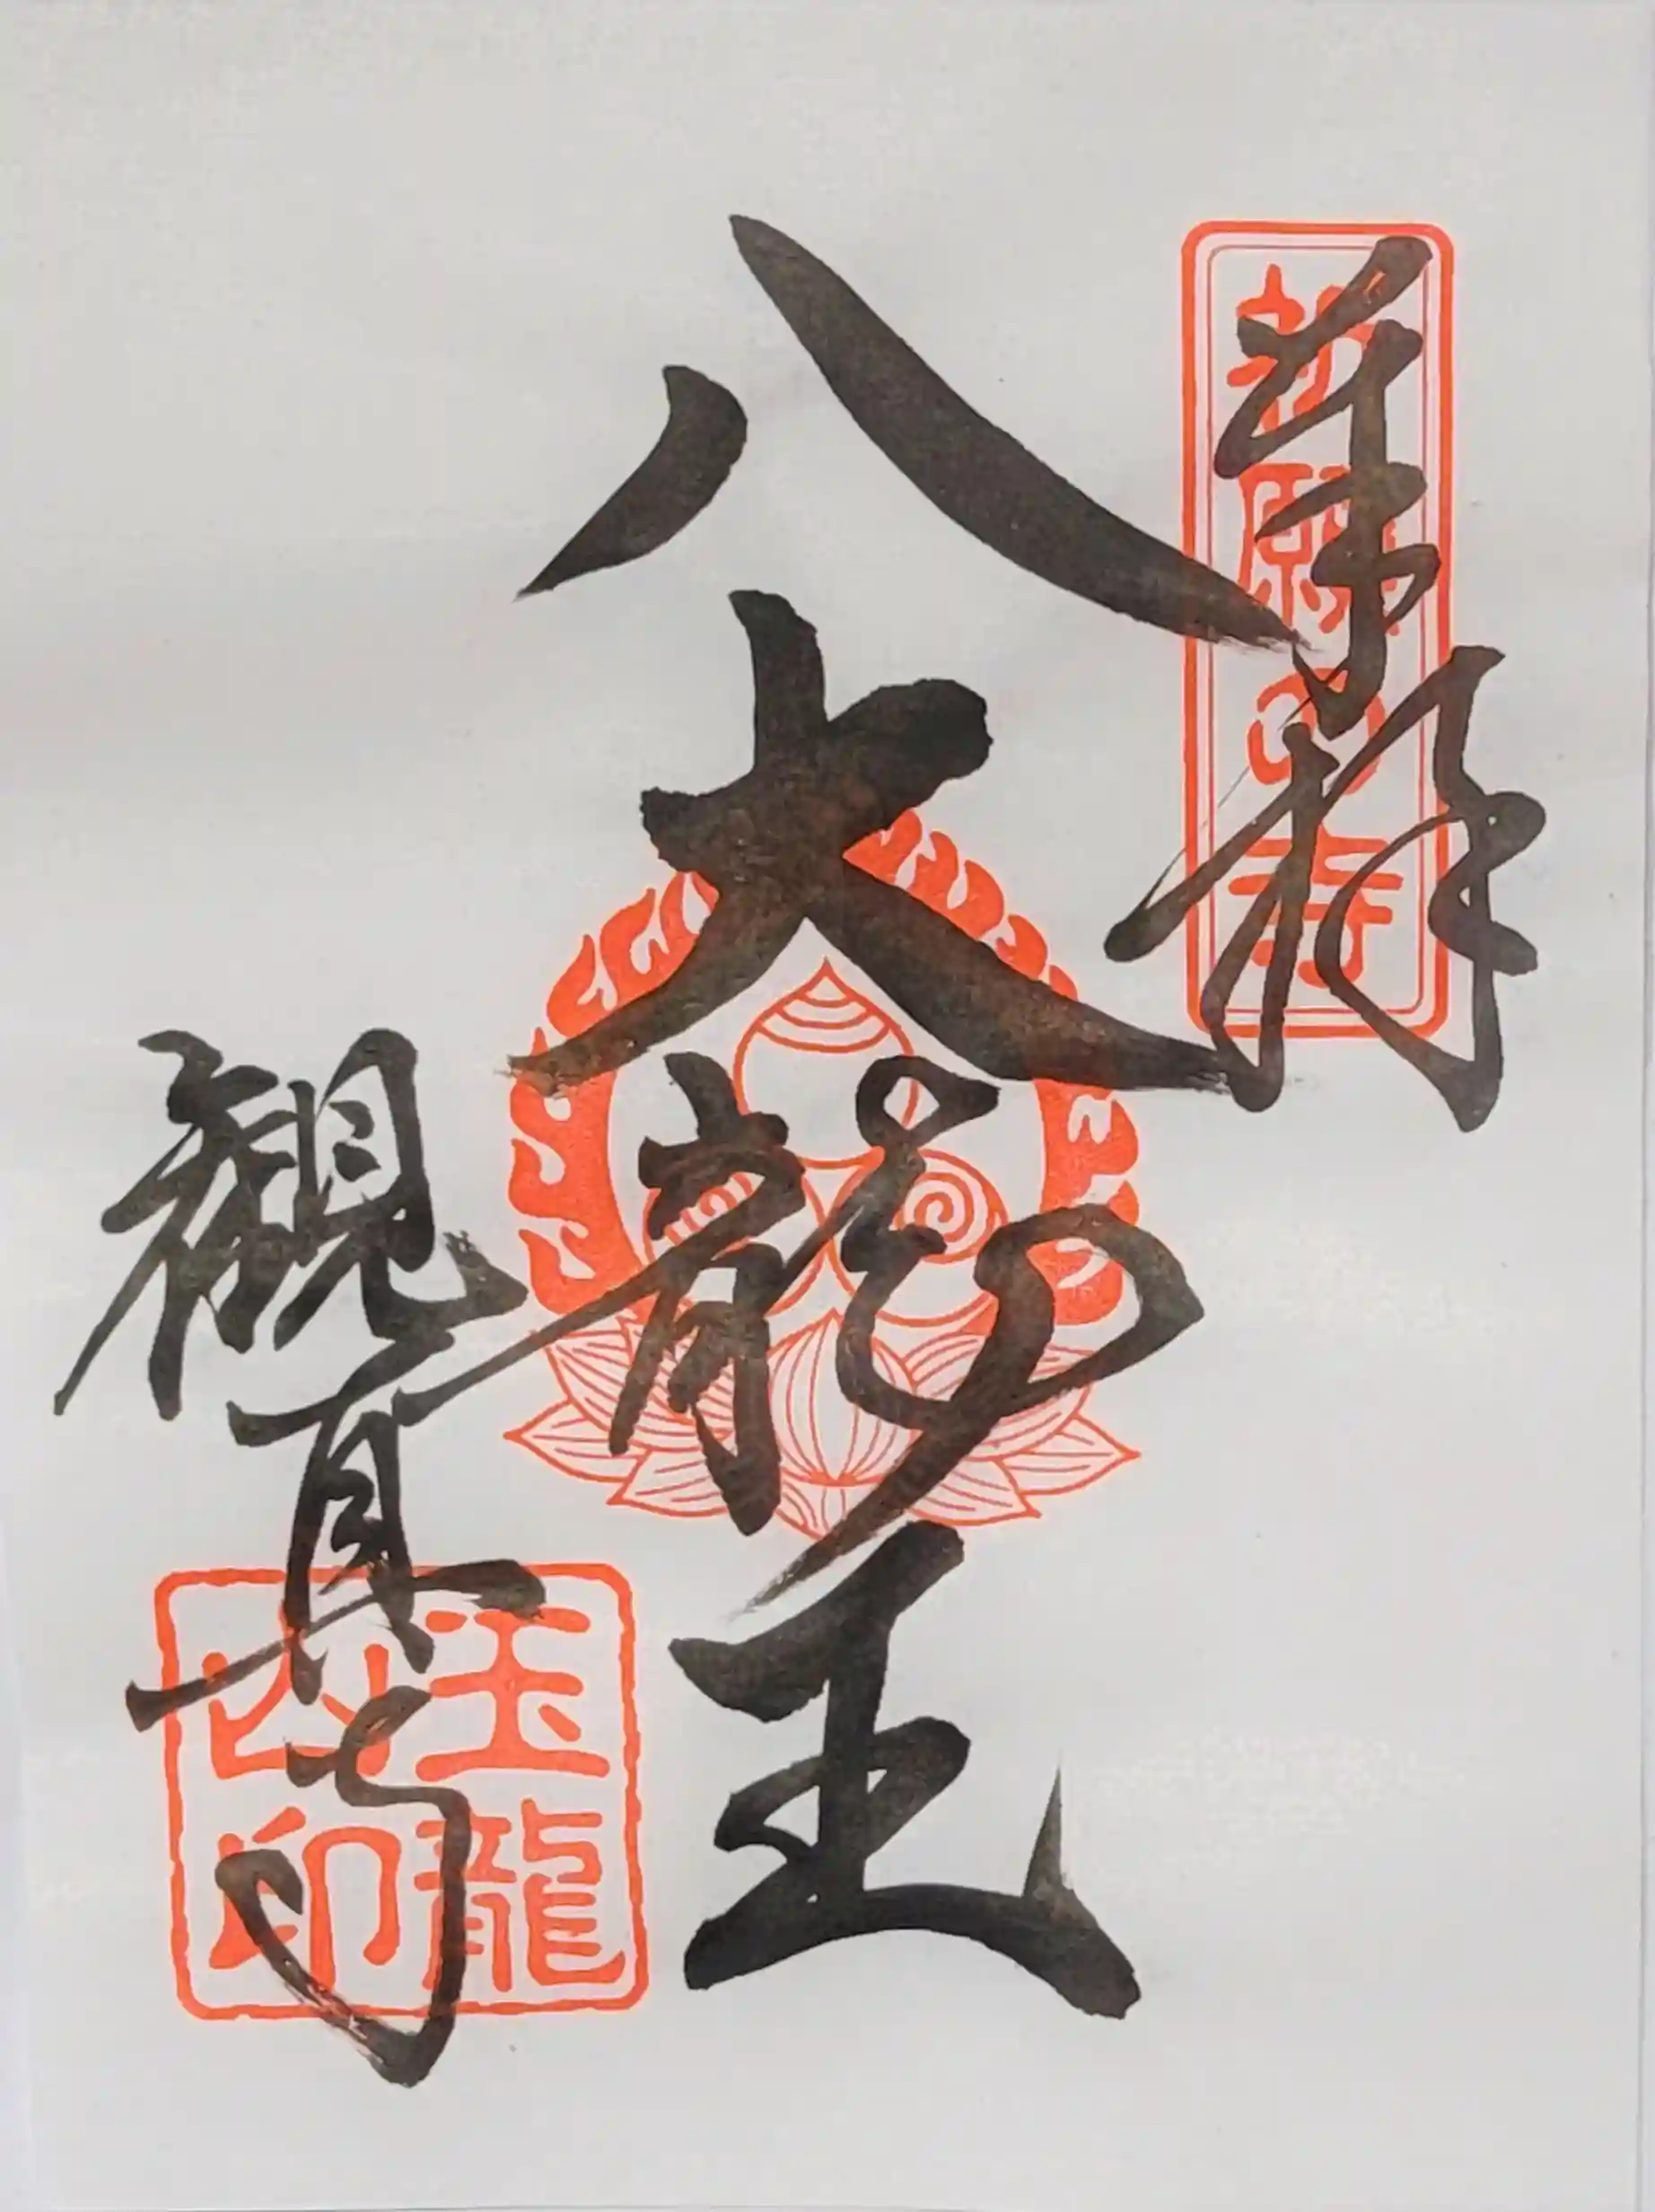 奉拝
祈願の寺
八大龍王
観真寺
玉龍
山印